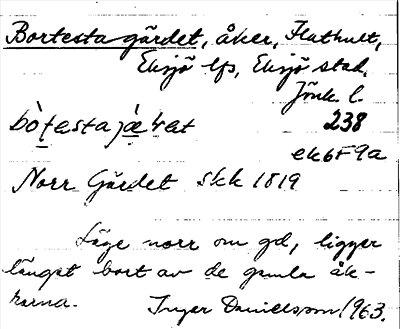 Bortesta gärdet, åker, Flathult,
Eksjö lfs, Eksjö stad,
Jönk. l.
bò̱testa jæ̀ṟet 238
ek6F9a
Norr Gärdet skk 1819
Läge norr om gd, ligger
längst bort av de gamla åk-
rarna. Inger Danielsson 1963.